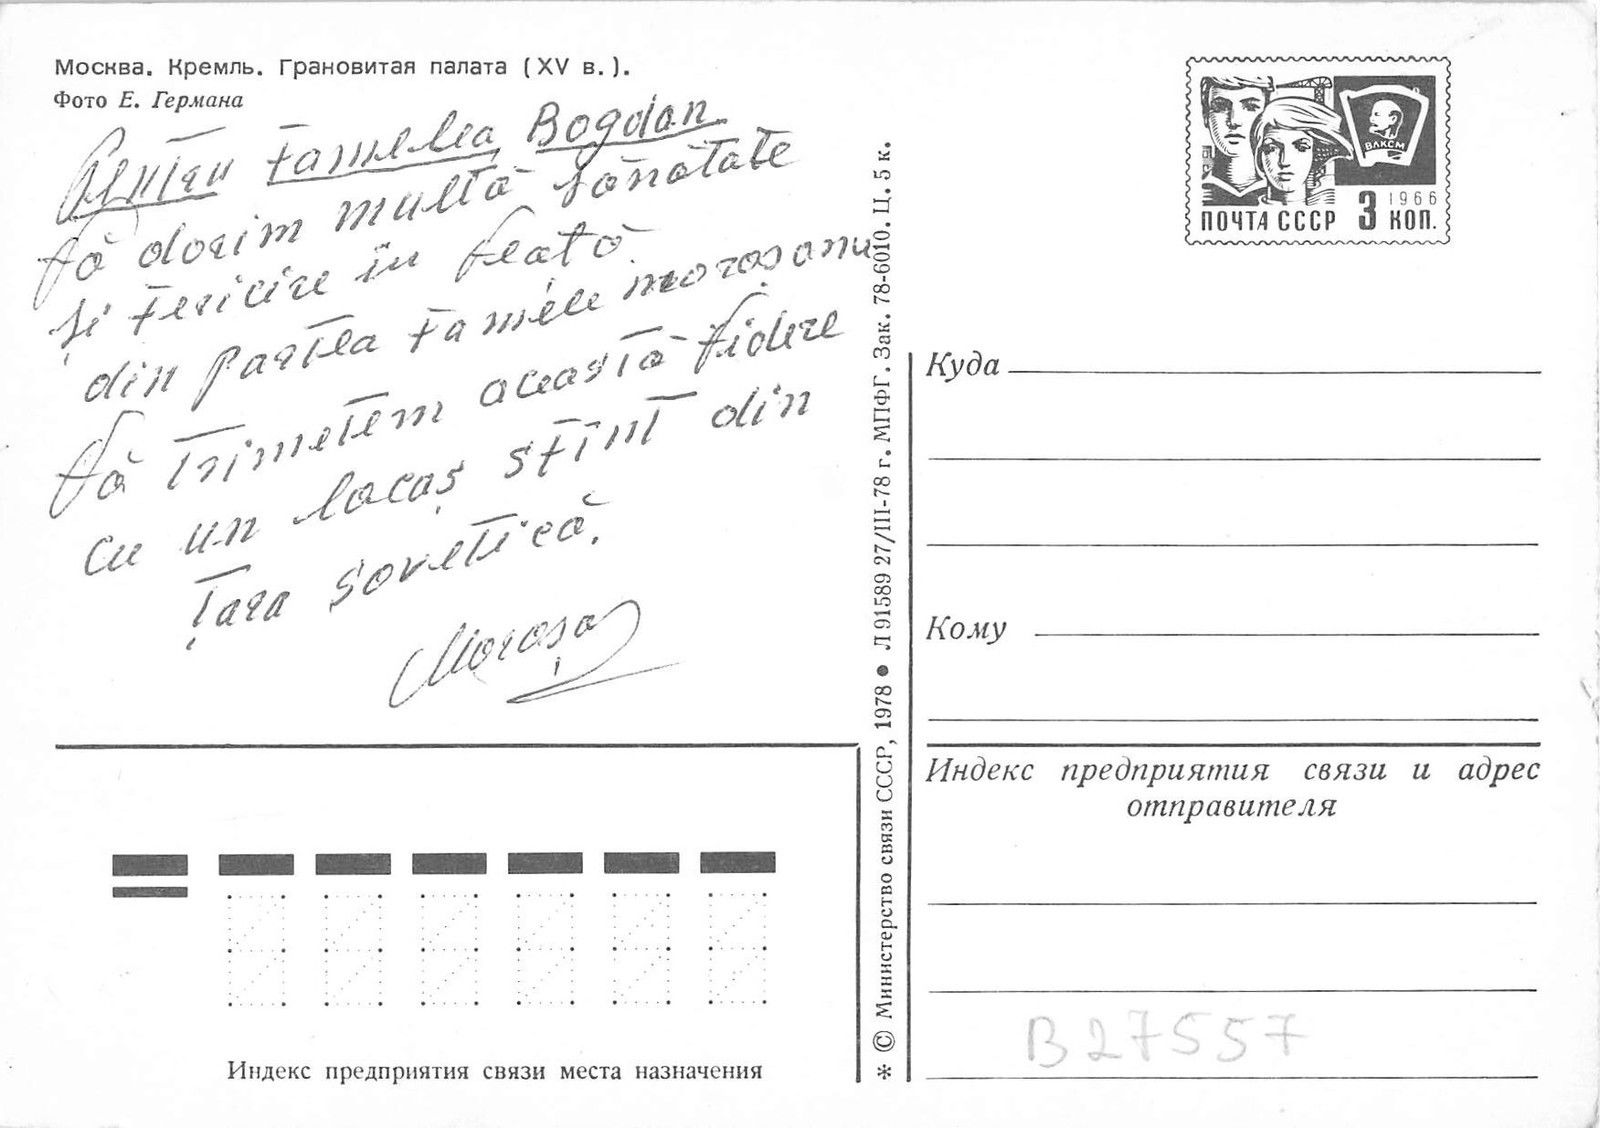 Москва. Кремль. Грановитая палата (XV в.).
Фото Е. Германа
Pentru Familia Bogdan
Vă dorim multă sănătate
și fericire în viață
din partea Familie Moroșanu
Vă trimetem această videre
cu un locaș sfînt din
Țara Sovetică.
Moroșa
* © Министерство связи СССР, 1978 ● Л 91589 27/III-78 г. МПФГ. Зак. 78-6010. Ц. 5 к.
ВЛКСМ
1966
ПОЧТА СССР 3 КОП.
Куда
Кому
Индекс предприятия связи и адрес
отправителя
B27557
Индекс предприятия связи места назначения